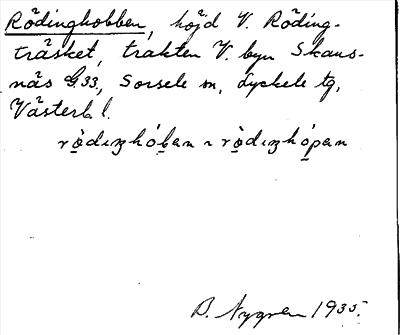 Rödinghobben, höjd V. Röding-
träsket, trakten V. byn Skans-
näs G33, Sorsele sn, Lycksele tg,
Västerb. l.
rödıŋhóban ~ rödıŋhópan
B. Nygren 1935.